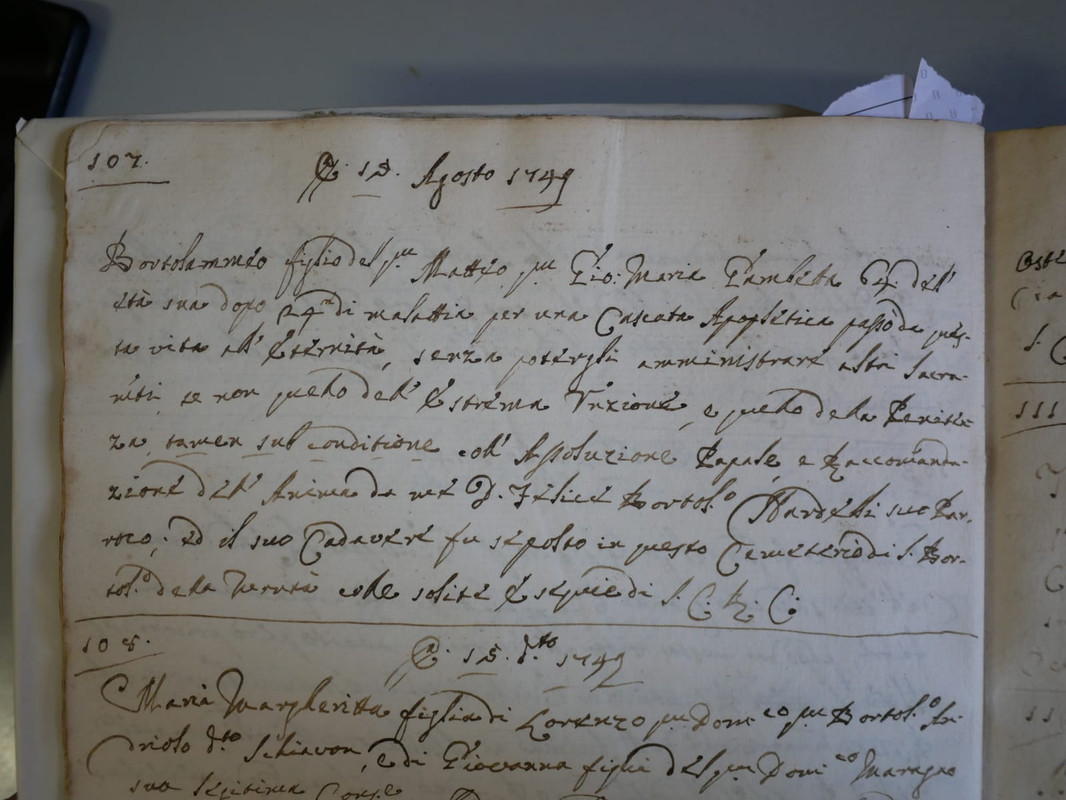 107.
A. 15. Agosto 1749
Bortolammeo figlio del qm Matteo qm Gio: Maria Gambeta 64. dell'
età sua dopo di malattia per una Cascata Apopletica passò da ques-
ta vita all' Eternità, senza potergli amministrare altri Sacra-
nti, se non quello dell' Estrema Unzione, e quello della Peniten-
za, tamen sub conditione coll' Assoluzione Papale, e Raccomanda-
zione dell' Anima da me D. Felice Bortol.o Nardelli suo Par-
roco; ed il suo Cadavere fu sepolto in questo Cemeterio di S. Bor-
tol.o della colle solite Esequie di S. C. R. C.
108.
A. 15. d.to 1749
Maria Margheritta figlia di Lorenzo qm Dom.co qm Bortol.o An-
driolo d.to Schiavon, e di Giovanna figlia del qm Dom.co Maragno
sua legitima
111